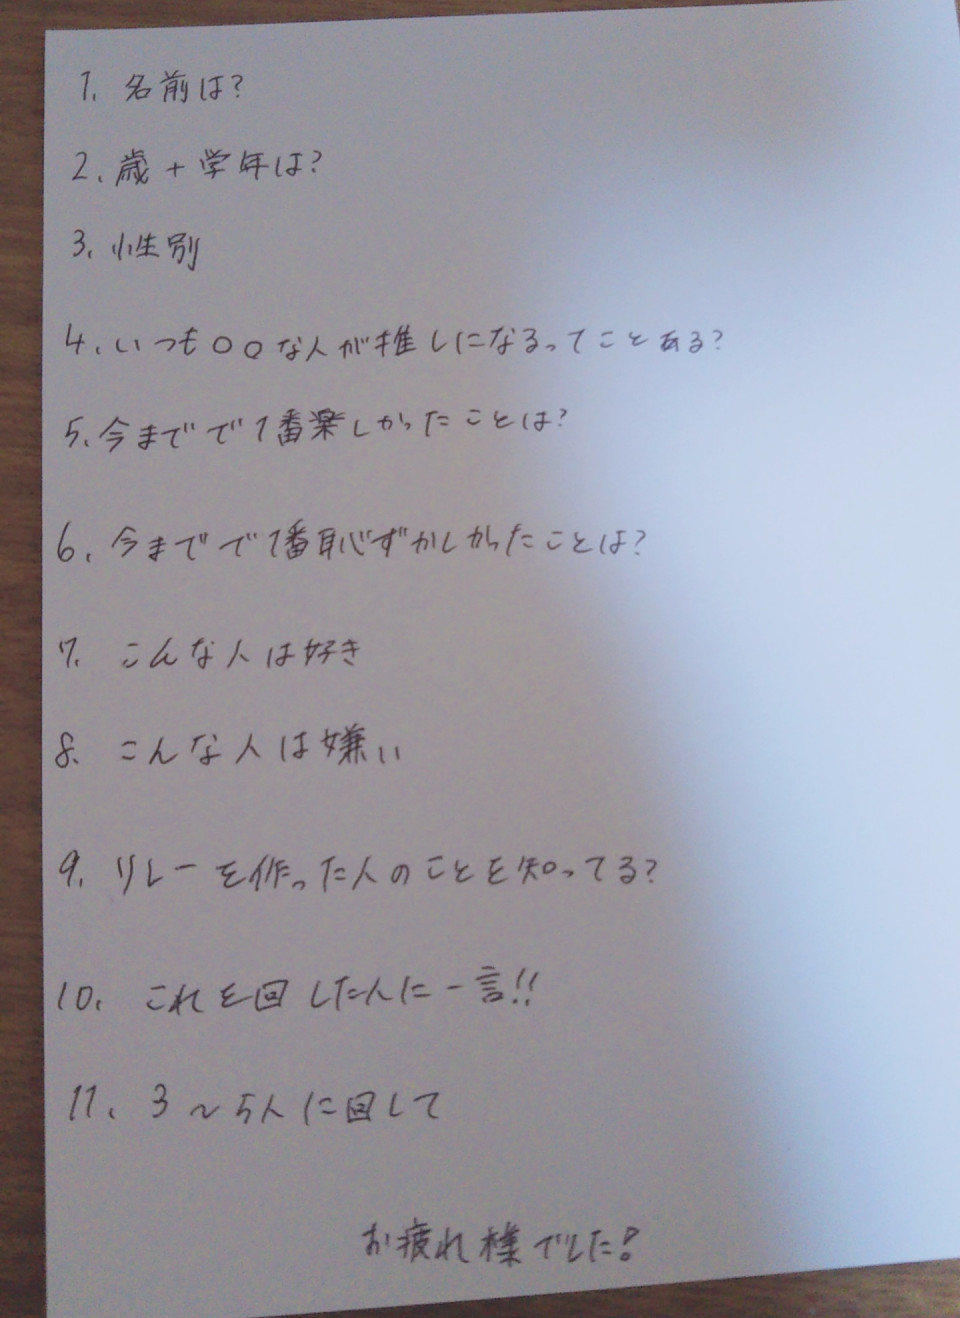 1. 名前は?
2. 歳+学年は?
3. 性別
4. いつも○○な人が推しになるってことある?
5. 今までで1番楽しかったことは?
6. 今までで1番恥ずかしかったことは?
7. こんな人は好き
8. こんな人は嫌い
9. リレーを作った人のことを知ってる?
10. これを回した人に一言!!
11. 3〜5人に回して
お疲れ様でした!